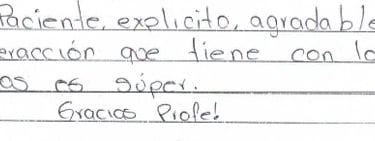 Paciente, explicito, agradable
eracción que tiene con lo
as es súper.
Gracias Profe!